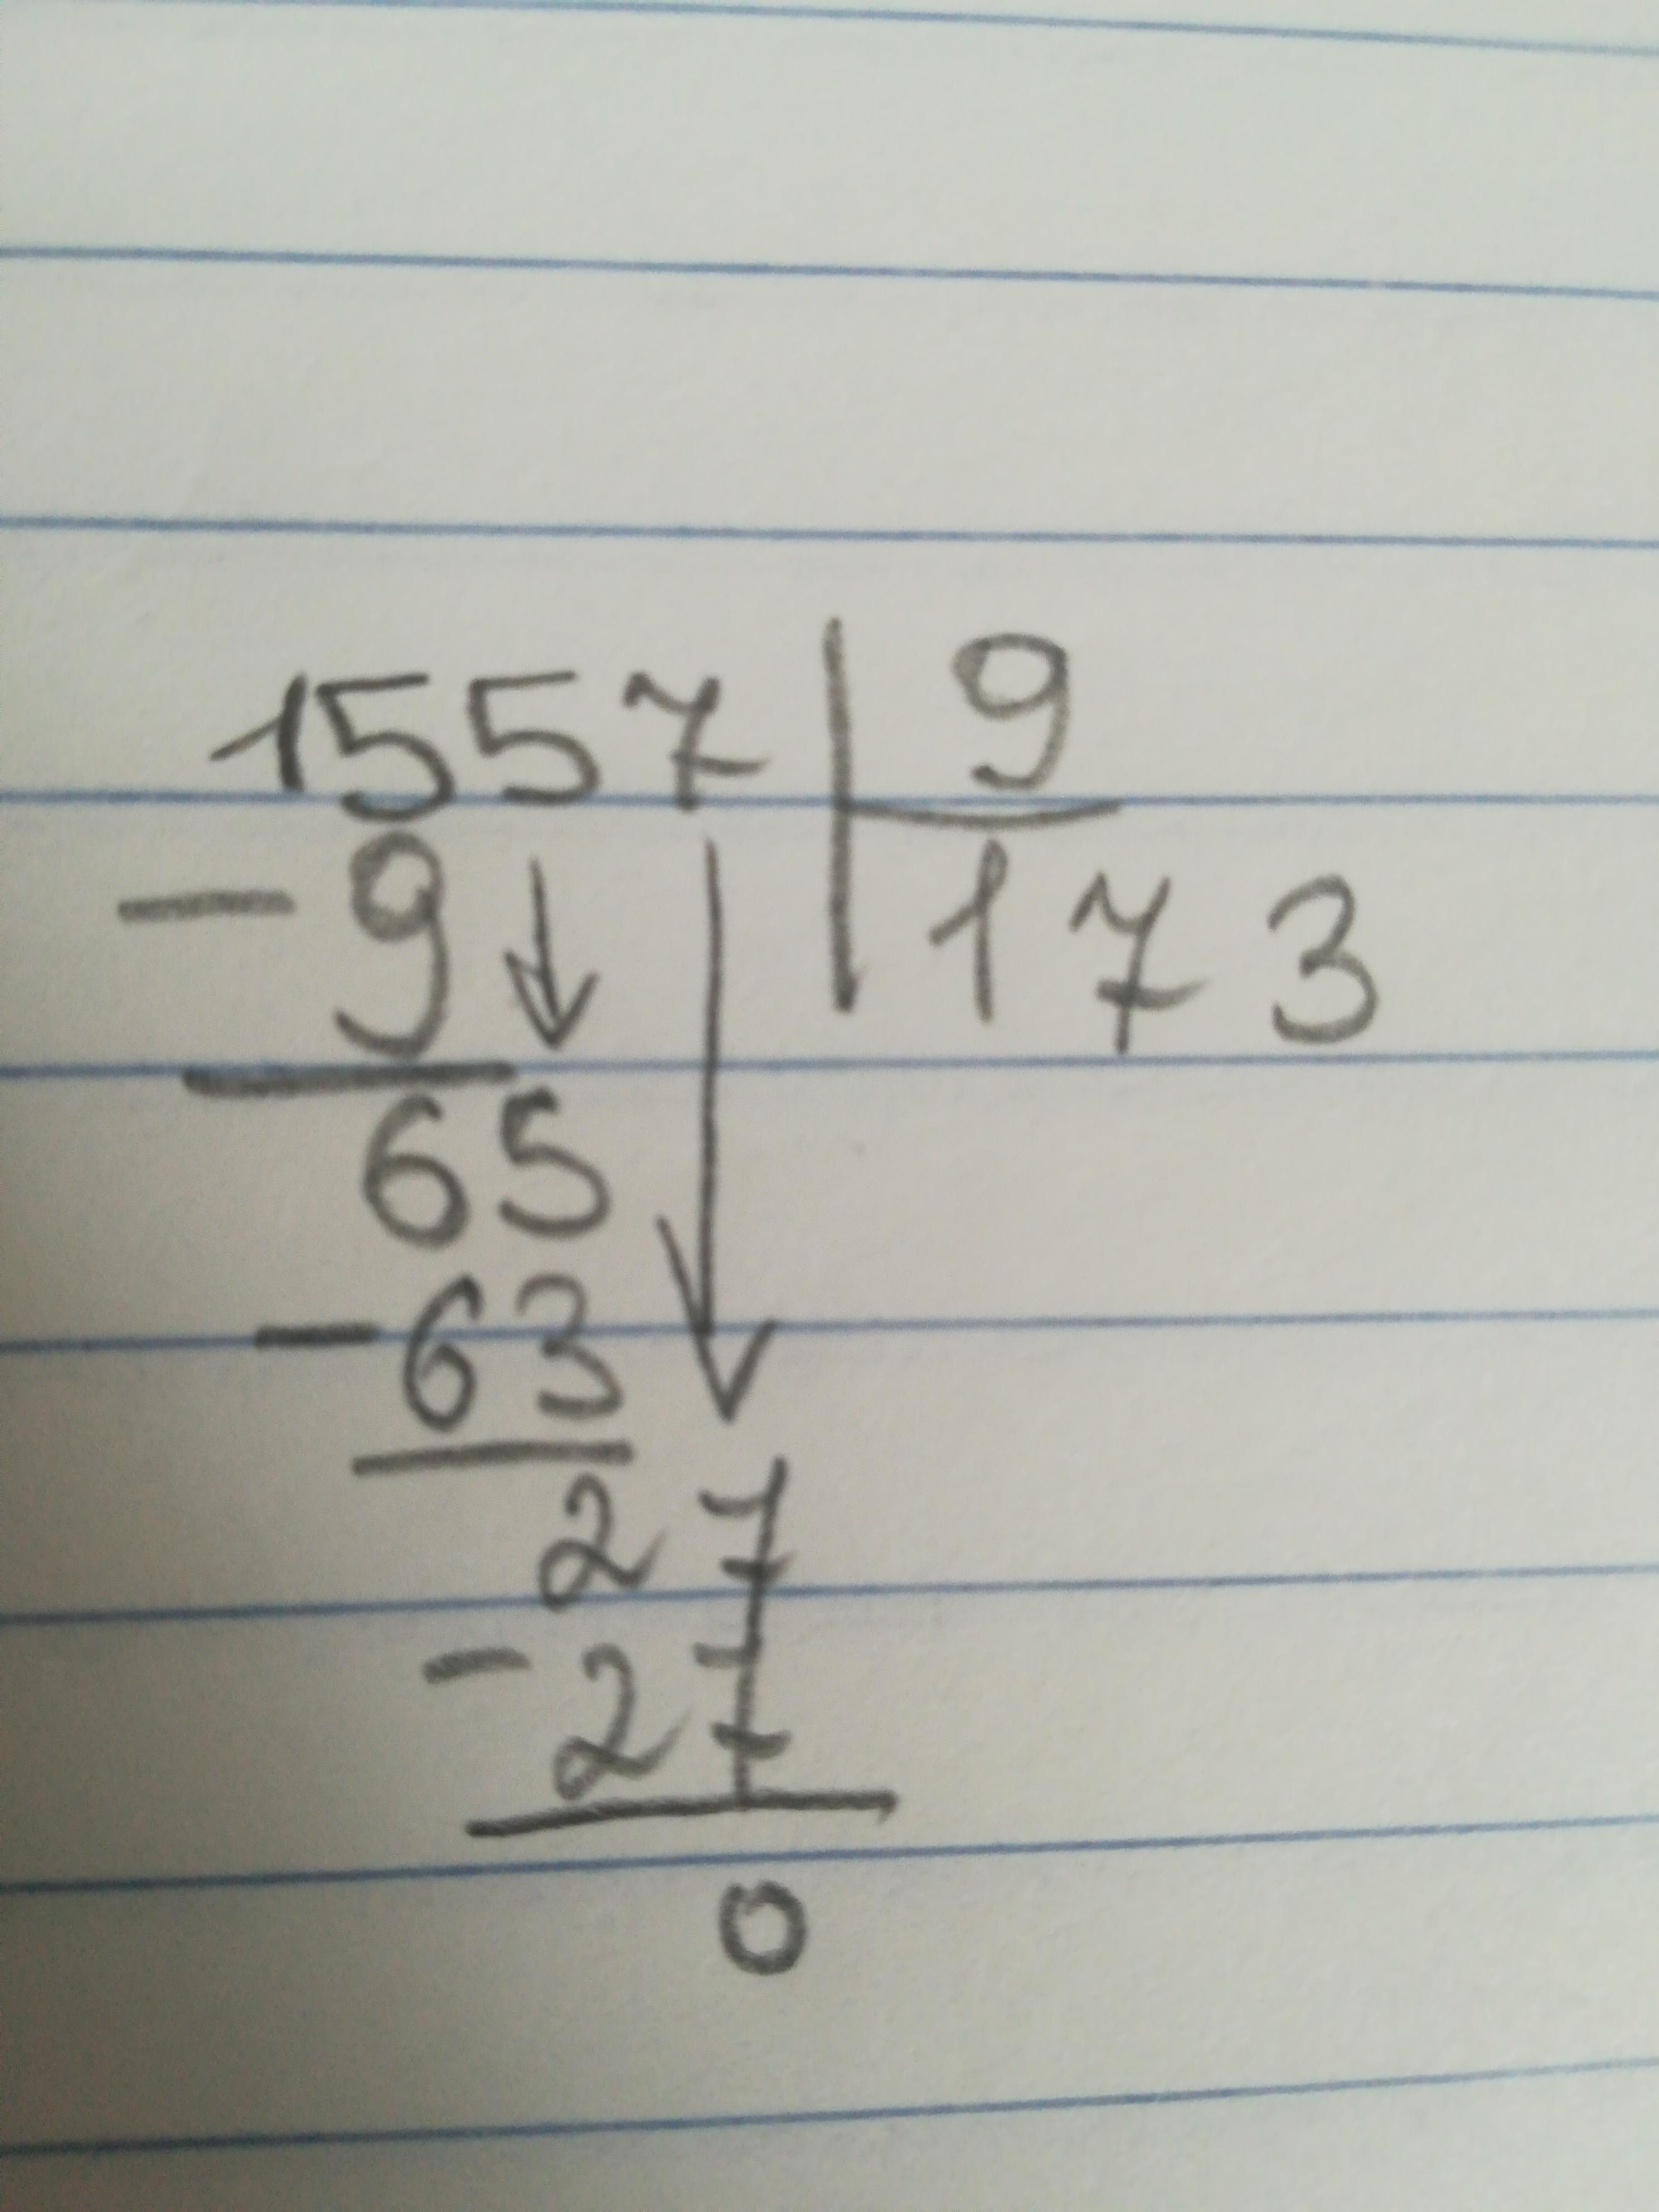 1557 | 9
- 9 173
65
- 63
27
- 27
0